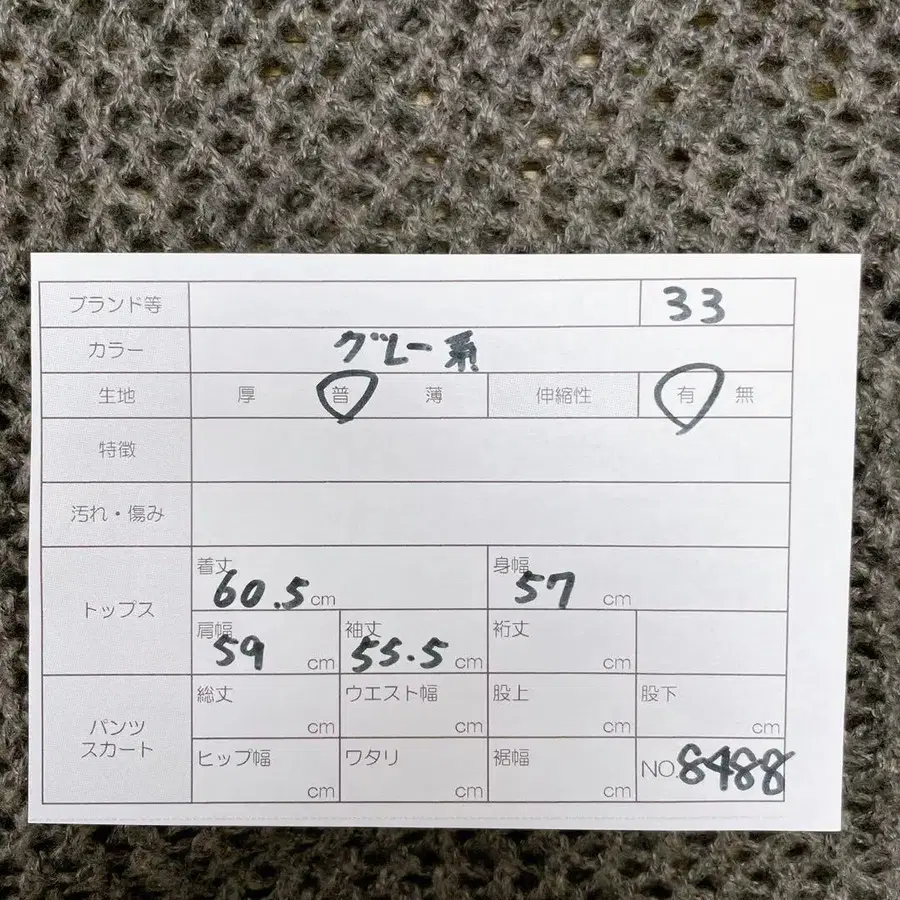 ブランド等 33
カラー グレー系
生地 厚 普 薄 伸縮性 有 無
特徴
汚れ・傷み
トップス
着丈 60.5 cm 身幅 57 cm
肩幅 59 cm 袖丈 55.5 cm 裄丈 cm
パンツ
スカート
総丈 cm ウエスト幅 cm 股上 cm 股下 cm
ヒップ幅 cm ワタリ cm 裾幅 cm NO.8488